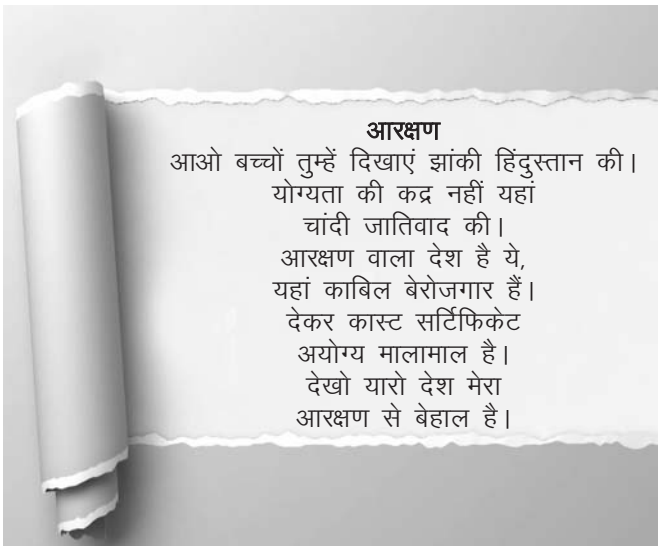 आरक्षण
आओ बच्चों तुम्हें दिखाएं झांकी हिंदुस्तान की।
योग्यता की कद्र नहीं यहां
चांदी जातिवाद की।
आरक्षण वाला देश है ये,
यहां काबिल बेरोजगार हैं।
देकर कास्ट सर्टिफिकेट
अयोग्य मालामाल है।
देखो यारो देश मेरा
आरक्षण से बेहाल है।